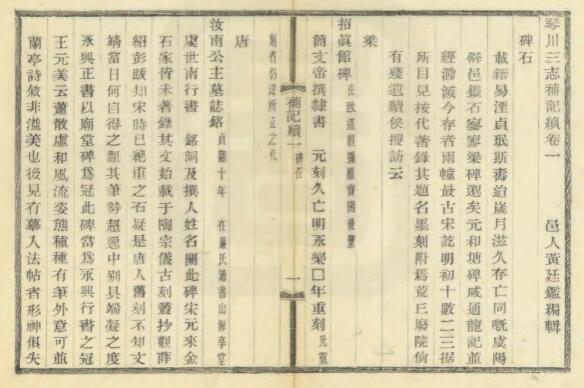 琴川三志補記續卷一
邑人黃廷鑑編輯
碑石
載籍易湮貞珉斯壽迨歲月滋久存亡同慨虞陽
僻邑鑴石寥寥梁碑遐矣元和塘碑咸通龍記並
經泐滅今存者兩幢最古宋訖明初十數二三據
所目見按代著錄其題名墨刻附焉荒丘廢院倘
有殘遺續俟搜訪云
梁
招眞館碑 在致道觀彌羅寶閣後壁
簡文帝撰隸書 元刻久亡明永樂□年重刻
補記續一 碑石
一
刻者仍從所立之代
唐
汝南公主墓誌銘 貞觀十年
虞世南行書 銘詞及撰人姓名闕此碑宋元來金
石家皆未著錄其文始載于陶宗儀古刻叢抄觀薛
紹彭跋知宋時已絶重之石疑是唐人舊刻不知文
靖當日何自得之觀其筆勢超逸中别具端凝之度
永興正書以廟堂碑爲冠此碑當爲永興行書之冠
王元美云蕭散虛和風流姿態種種有筆外意可並
蘭亭詩敘非溢美也後見有摹入法帖者形神俱失